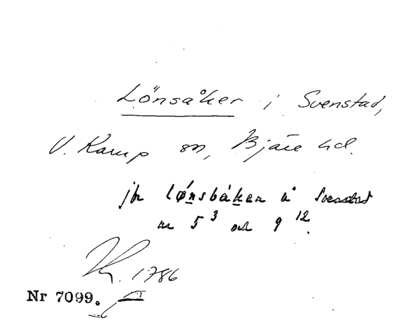 Lönsåker i Svenstad,
V. Karup sn, Bjäre hd.
jfr lønsbåken å Svenstad
nr 5 3 och 9 12.
1786
Nr 7099.